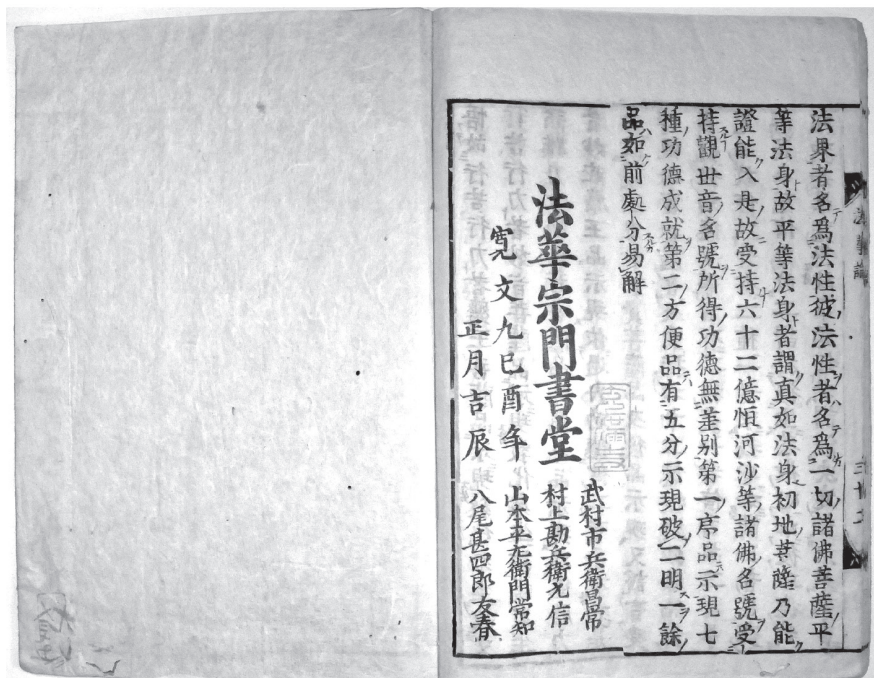 法界者名爲法性彼法性者名爲一切諸佛菩薩平
等法身故平等法身者謂真如法身初地菩薩乃能
證能入是故受持六十二億恒河沙等諸佛名號受
持觀世音名號所得功德無差别第一序品示現七
種功德成就第二方便品有五分示現破二明一餘
品如前處分易解
法華宗門書堂
寛文九己酉年
正月吉辰
武村市兵衛昌常
村上勘兵衛元信
山本平左衛門常知
八尾甚四郎友春